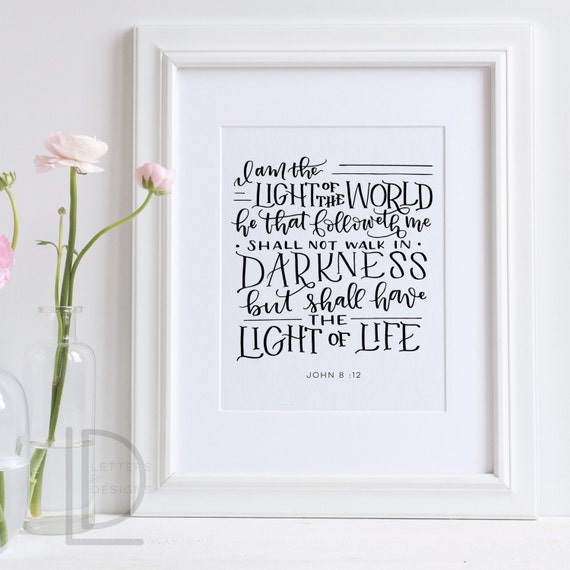 I am the
LIGHT OF THE WORLD
he that followeth me
• SHALL NOT WALK IN •
DARKNESS
but shall have
THE
LIGHT OF LIFE
JOHN 8 :12
LD
LETTERS
BY
DESIGNS